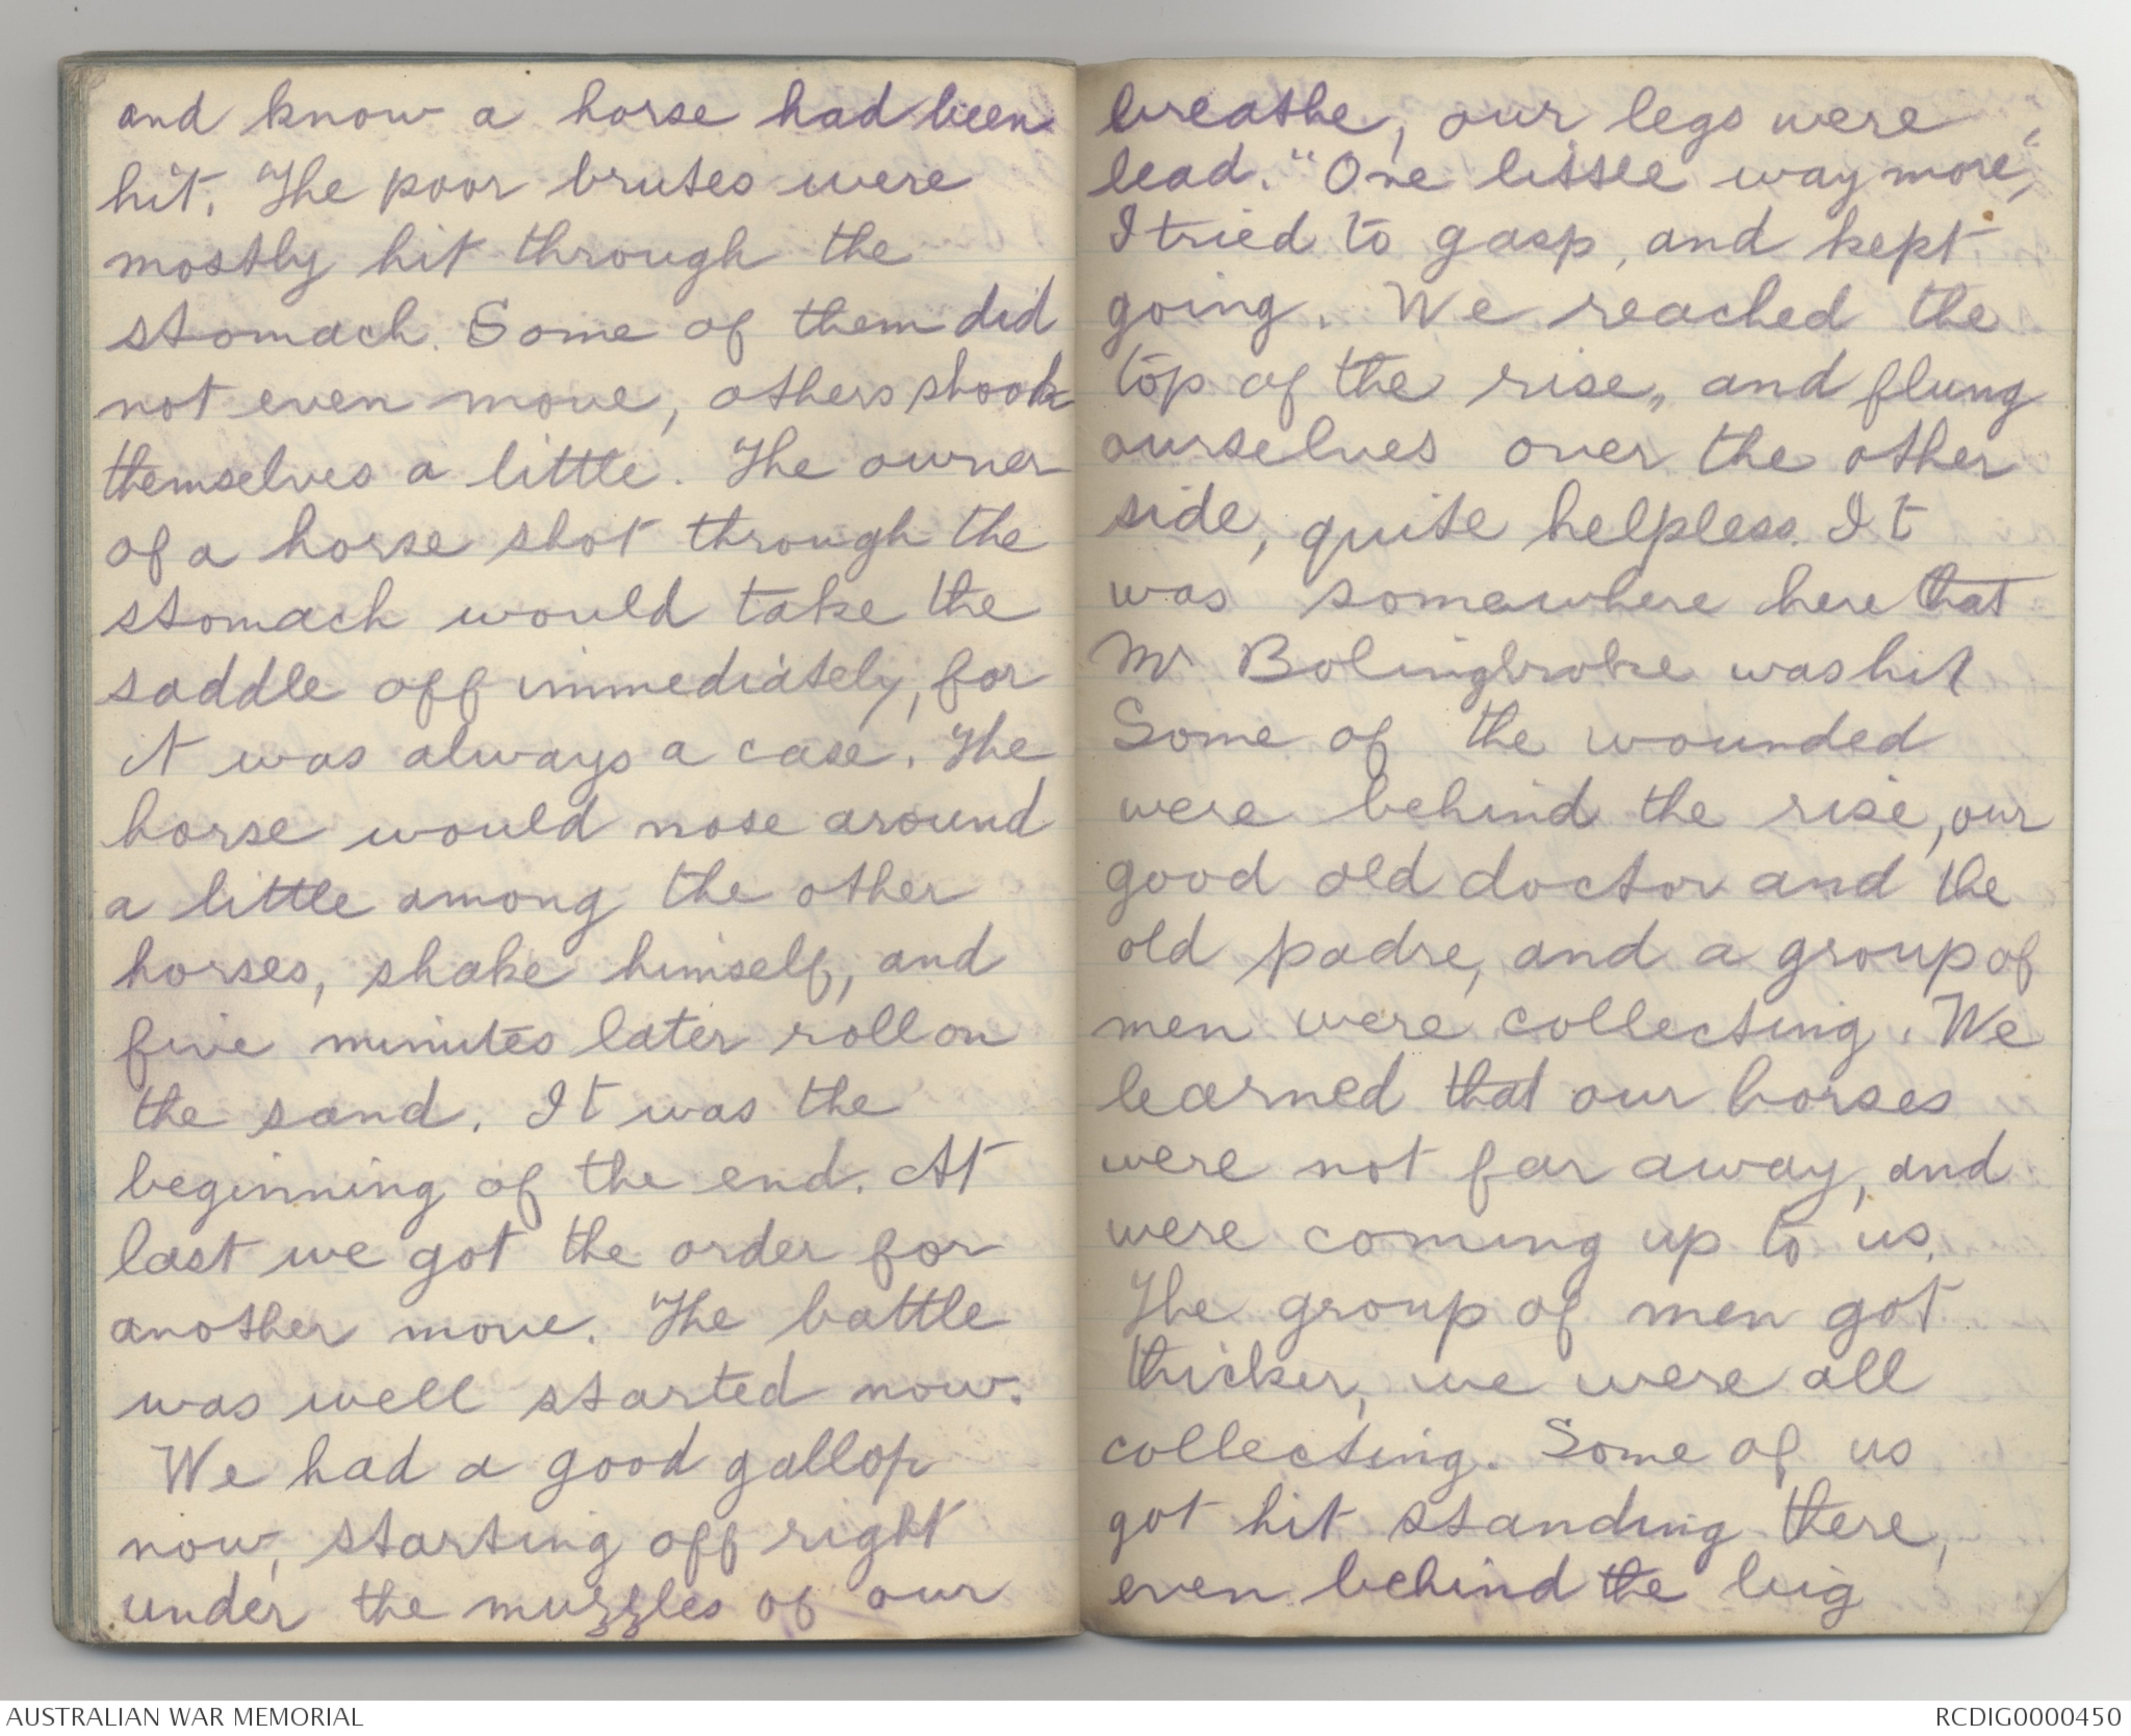 and know a horse had been
hit. The poor brutes were
mostly hit through the
stomach. Some of them did
not even move, others shook
themselves a little. The owner
of a horse shot through the
stomach would take the
saddle off immediately, for
it was always a case. The
horse would nose around
a little among the other
horses, shake himself, and
five minutes later roll on
the sand. It was the
beginning of the end. At
last we got the order for
another move. The battle
was well started now.
We had a good gallop
now, starting off right
under the muzzles of our
breathe, our legs were
lead. "One little way more,"
I tried to gasp, and kept
going. We reached the
top of the rise, and flung
ourselves over the other
side, quite helpless. It
was somewhere here that
Mr Bolingbroke was hit
Some of the wounded
were behind the rise, our
good old doctor and the
old padre, and a group of
men were collecting. We
learned that our horses
were not far away, and
were coming up to us.
The group of men got
thicker, we were all
collecting. Some of us
got hit standing there,
even behind the big
AUSTRALIAN WAR MEMORIAL
RCDIG0000450